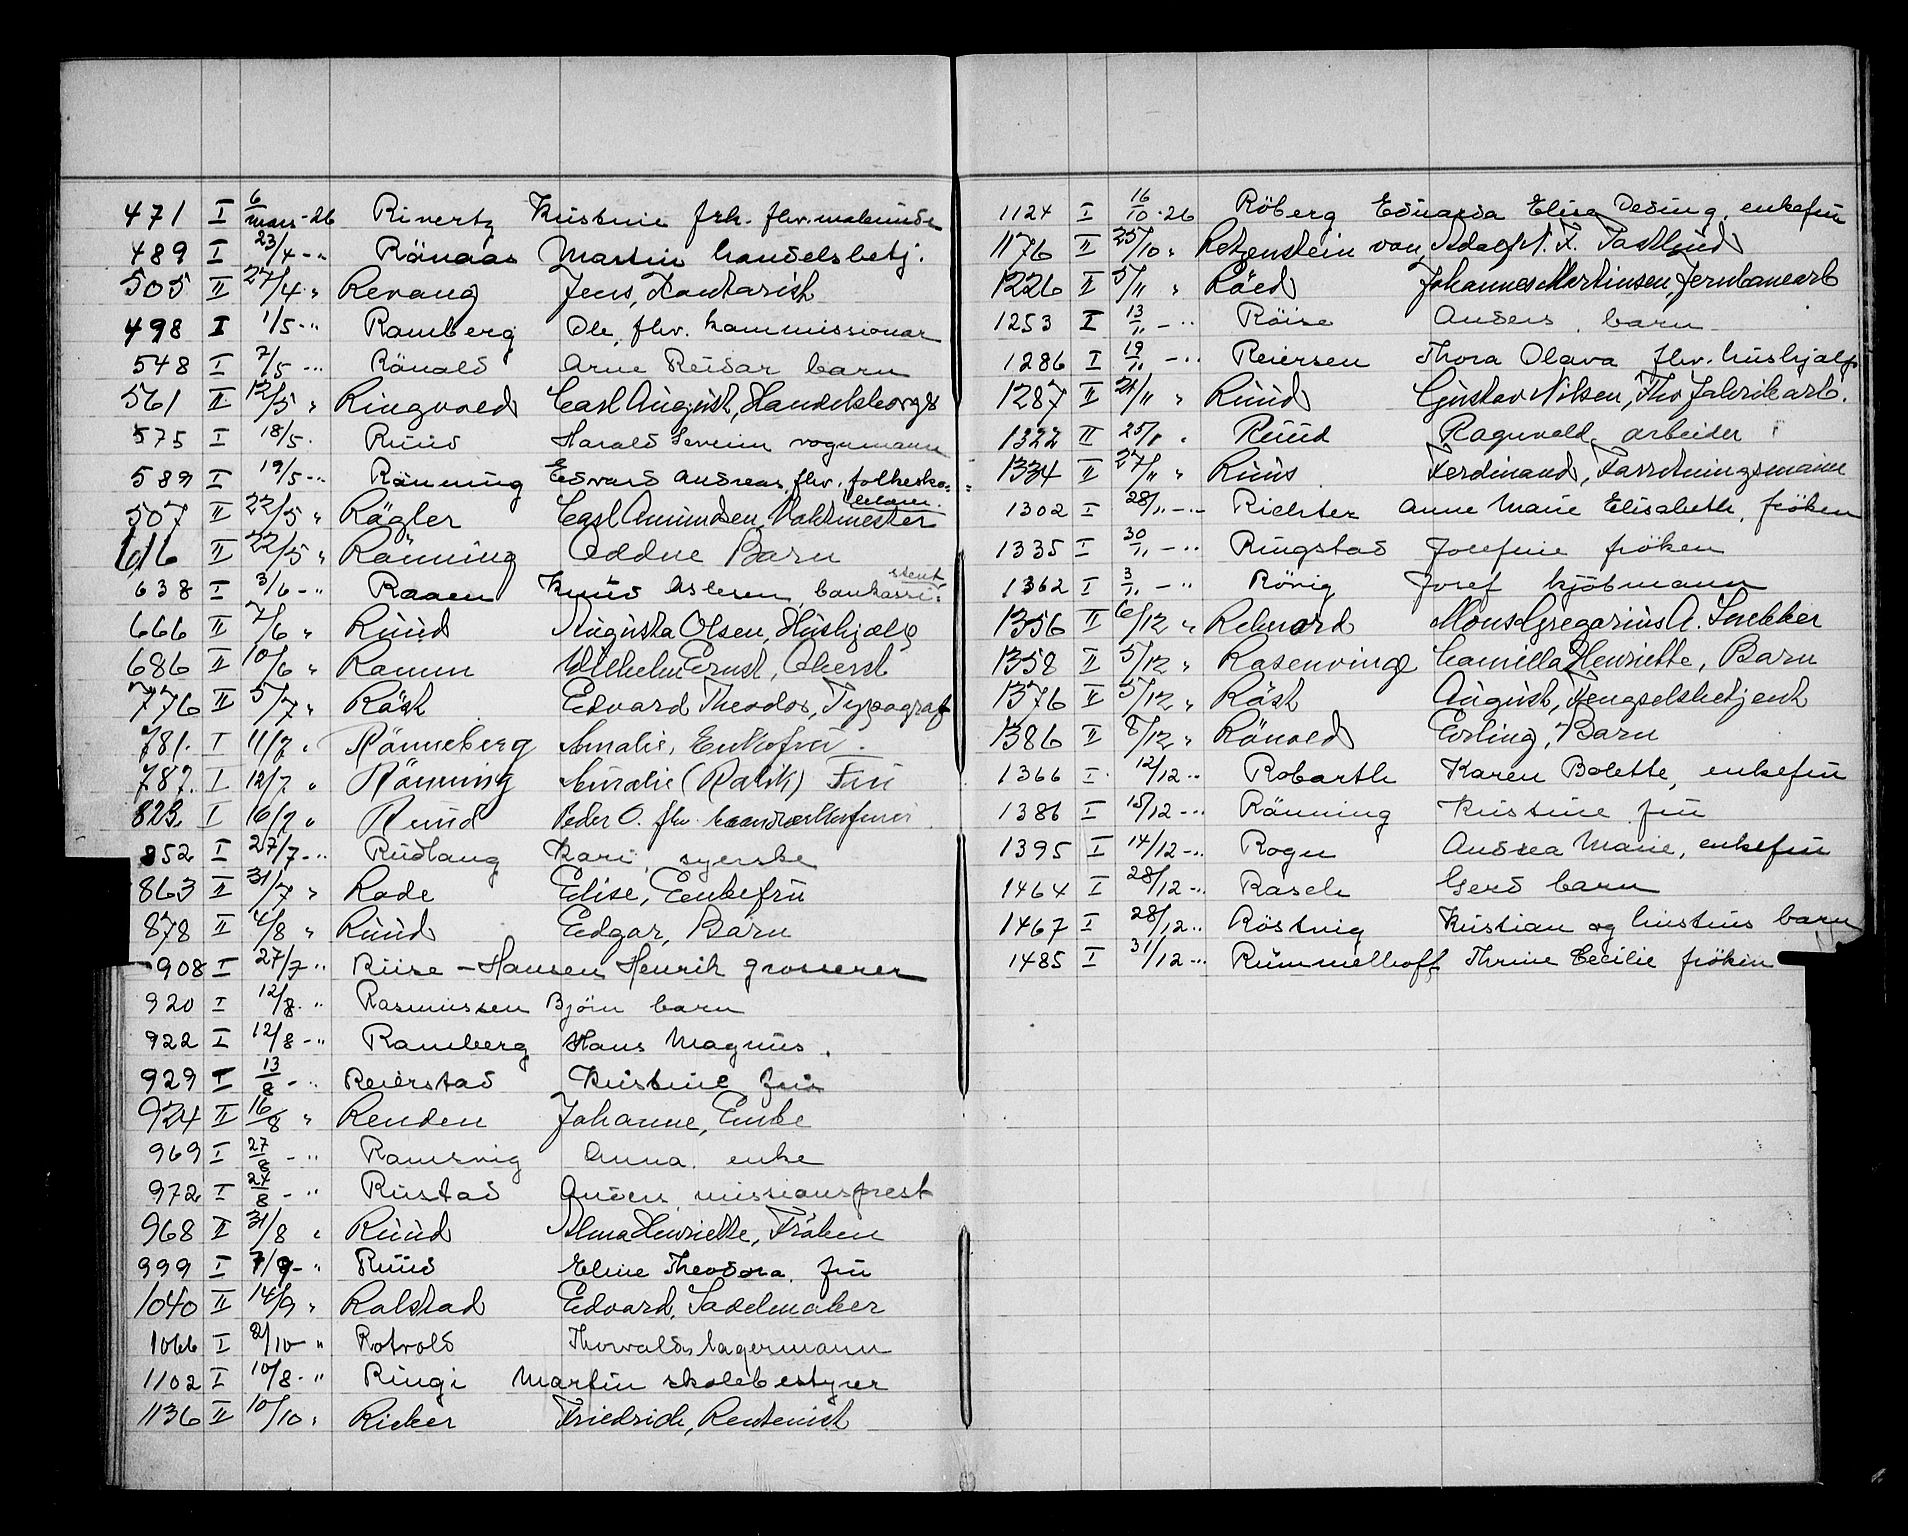 471 I 6/mars -26 Rivertz Kristine frk. fhv.
489 I 23/4 -" Rönaas Martin handelsbetj.
505 II 27/4 " Revang Jens, Kontorist
498 I 1/5 -" Ramberg Ole, fhv. kommissionær
548 I 7/5 -" Rönold Arne Reidar barn
561 II 12/5 " Ringvold Carl August, Handelsborger
575 I 18/5 Ruud Harald Severin vognmann
589 I 19/5 -" Rönning Edvard Andreas, fhv. folkesko=
lelærer.
507 II 22/5 " Rögler Carl Amundsen, Vaktmester
616 II 22/5 " Rönning Oddne Barn
stent
638 I 3/6 -" Raaen Knud Aslesen, bankassi=
666 II 7/6 " Ruud Augusta Olsen, Hushjælp
686 II 10/6 " Ramm Wilhelm Ernst, Oberst
776 II 5/7 " Röst Edvard Theodor, Typograf
781. I 11/7 " Rönneberg Amalie, Enkefru.
787. I 12/7 " Rönning Amalie (Ratik) Fru
823. I 16/7 " Ruud Peder O. fhv.
852 I 27/7 -" Rudlang Kari, syerske
863 II 31/7 " Rode Elise, Enkefru
878 II 4/8 " Ruud Edgar, Barn
908 I 27/7 -" Riise-Hansen Henrik grosserer
920 I 12/8 -" Rasmussen Björn barn
922 I 12/8 -" Ramberg Hans Magnus.
929 I 13/8 -" Reierstad Kristine fru
924 II 16/8 " Renden Johanne, Enke
969 I 27/8 -" Ramsvig Anna. enke
972 I 24/8 -" Rustad Anders missionsprest
968 II 31/8 " Ruud Alma Henriette, Fröken
999 I 7/9 -" Ruud Eline Theodora. fru
1040 II 14/9 " Rolstad Edvard, Sadelmaker
1066 I 2/10 " Rotvold Thorvald, lagermann
1102 I 10/8 -" Ringi Martin skolebestyrer
1136 II 10/10 " Ricker Friedrich, Rentenist
1124 I 16/10 -26 Röberg Edvarda Elisa Deding. enkefru
1176 II 25/10 " Retzenstein von, Adolf N. F.
1226 II 5/11 " Röed Johannes Martinsen, Jernbanearb
1253 I 13/11 -" Röise Anders. barn
1286 I 19/11 -" Reiersen Thora Olava fhv. hushjalp.
1287 II 24/11 " Ruud Gustav Nilsen, Fhv fabrikarb.
1322 II 25/11 " Ruud Ragnvald. arbeider
1334 II 27/11 " Ruus Ferdinand, Forretningsmann
1302 I 28/11 -" Richter Anne Marie Elisabeth, fröken
1335 I 30/11 -" Ringstad Josefine fröken
1362 I 3/11 -" Rövig Josef kjöbmann
1356 II 6/12 " Rehnord Mons Gregorius A. Snekker
1358 II 5/12 " Rosenvinge Camilla Henriette, Barn
1376 II 5/12 " Röst August, Fengselsbetjent
1386 II 8/12 " Rönold Erling, Barn
1366 I 12/12 -" Robarth Karen Bolette, enkefru
1386 I 15/12 -" Rönning Kristine fru
1395 I 14/12 -" Rogn Andrea Marie, enkefru
1464 I 28/12 -" Rasch Gerd barn
1467 I 28/12 -" Röstvig Kristian og barn
1485 I 31/12 -" Rummelhoff Thrine Cecilie fröken